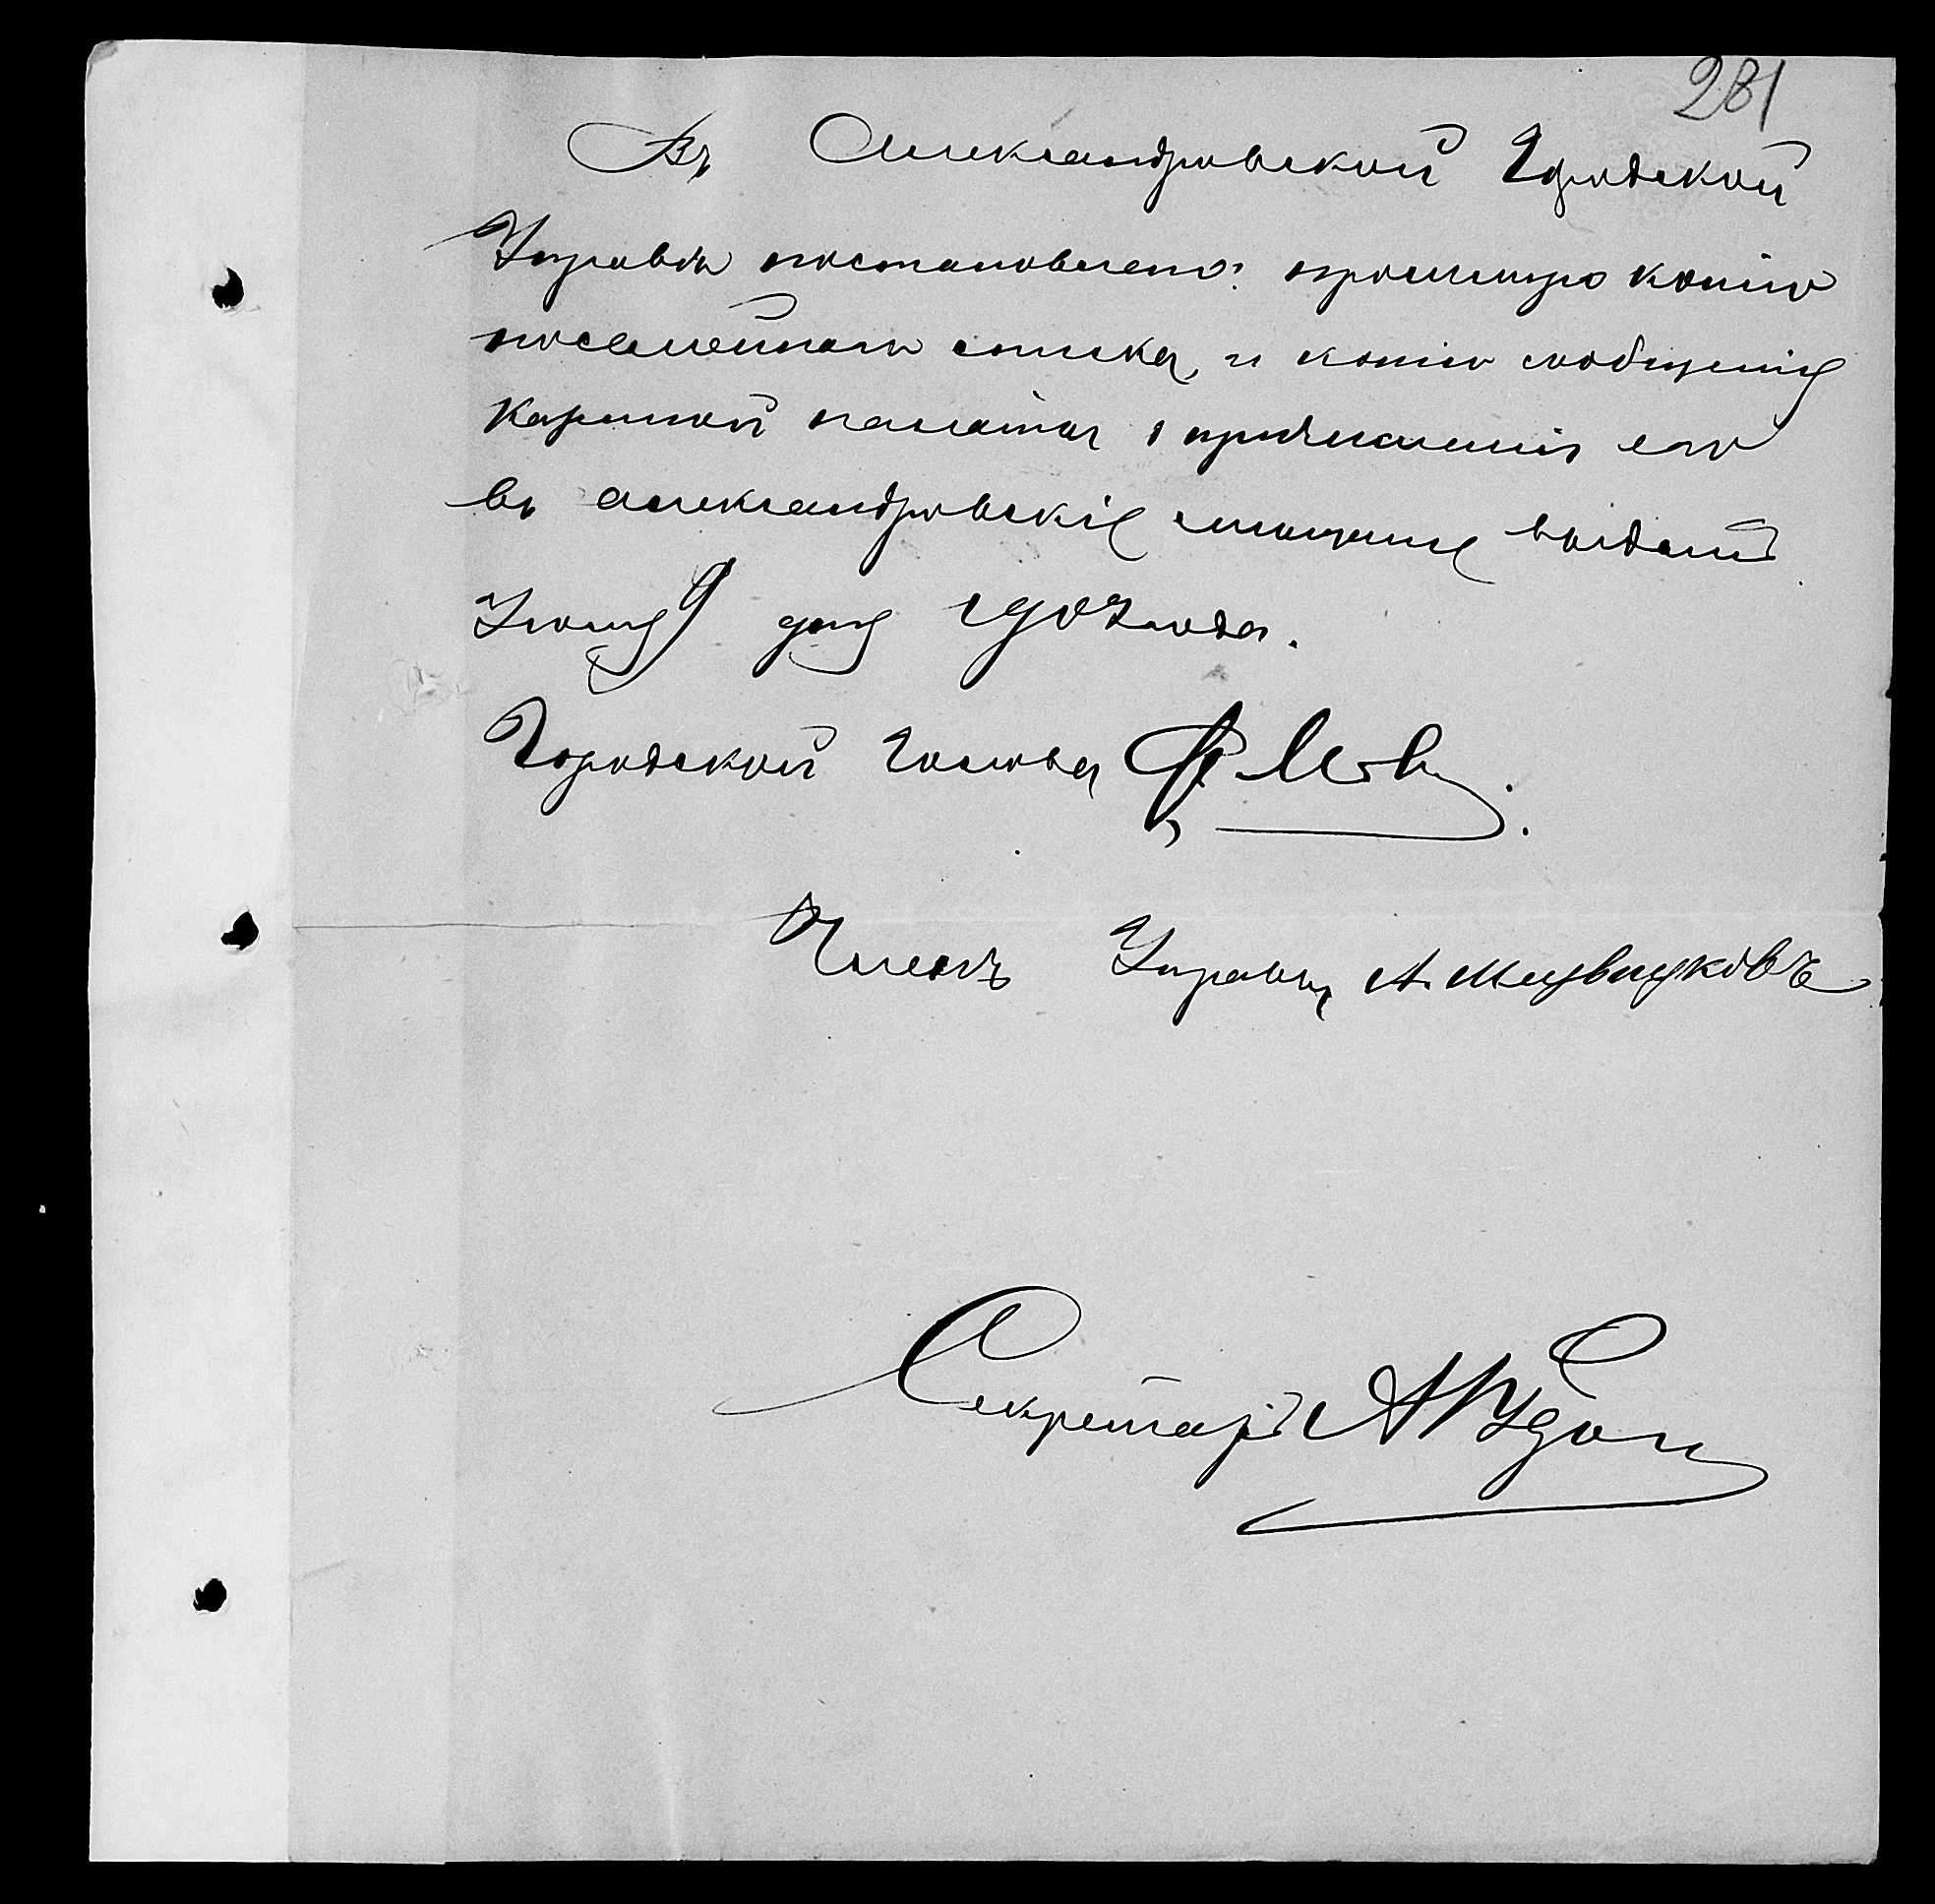 281
Въ Александровской Городской
Управѣ постановлено: просимую копію
посемейнаго списка, и копію сообщенія
Казенной палаты о причисленіи его
въ александровскіе мѣщане выдать
Іюня 9 дня 1907 года.
Городской Голова
Членъ Управы А.
Секретарь А